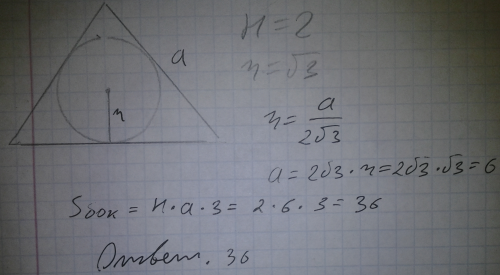 H = 2
r = √3
a
r
r = a / 2√3
a = 2√3 · r = 2√3 · √3 = 6
Sбок = H · a · 3 = 2 · 6 · 3 = 36
Ответ. 36